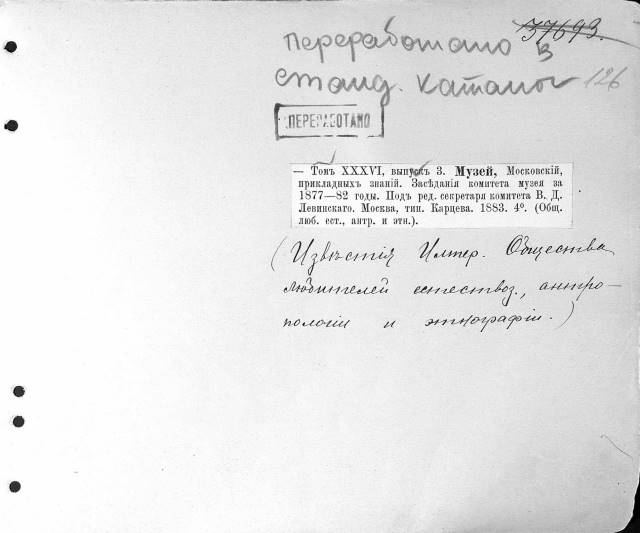 37693.
Переработано в
станд. каталог 126
ПЕРЕРАБОТАНО
— Томъ XXXVI, выпускъ 3. Музей, Московскій,
прикладныхъ знаній. Засѣданія комитета музея за
1877—82 годы. Подъ ред. секретаря комитета В. Д.
Левинскаго. Москва, тип. Карцева. 1883. 4°. (Общ.
люб. ест., антр. и этн.).
(Извѣстія Импер. Общества
любителей естествоз., антро-
пологіи и этнографіи.)